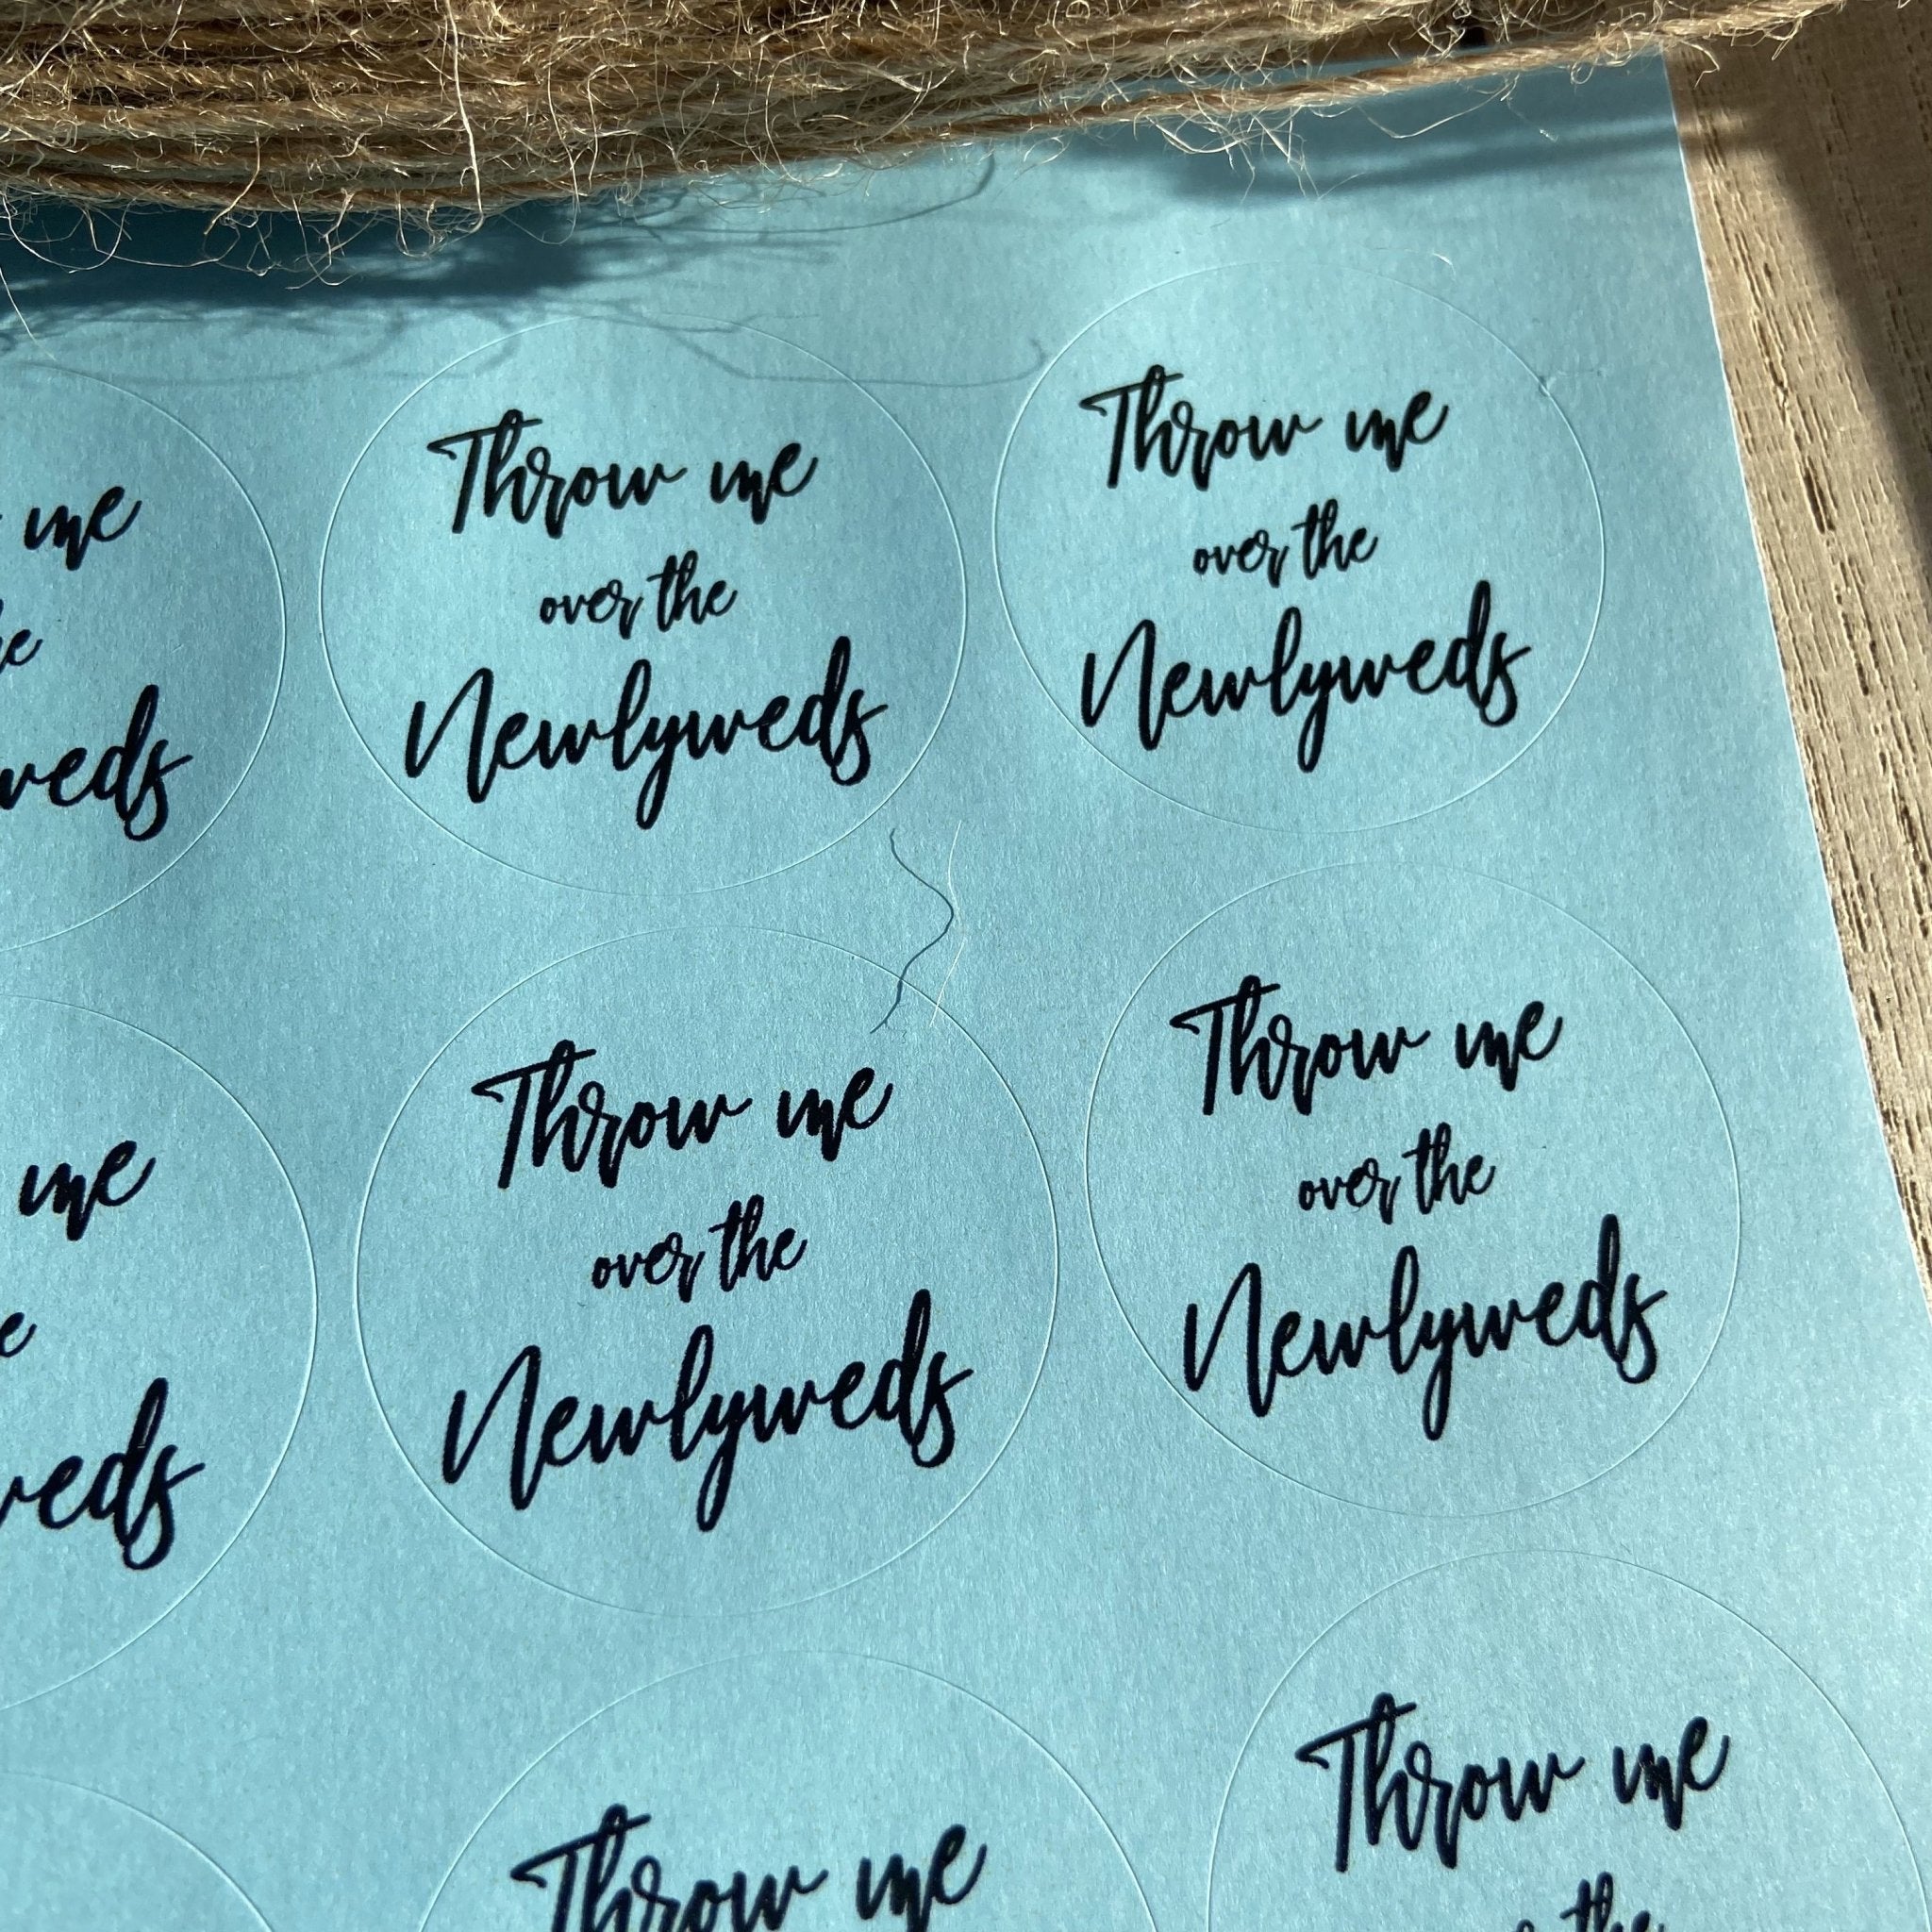 me
Throw me
over the
Newlyweds
Throw me
over the
Newlyweds
me
Throw me
over the
Newlyweds
Throw me
over the
Newlyweds
Throw me
Throw me
the